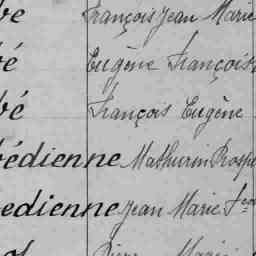 François Jean Marie
bé Eugène François
bé François Eugène
bédienne Mathurin Prosper
bedienne Jean Marie
Pierre Marie